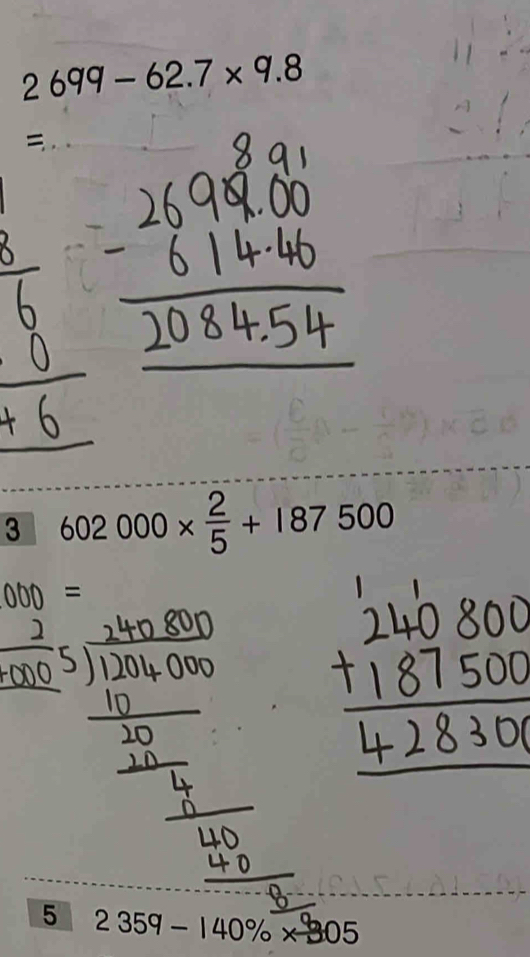 2 699 − 62.7 × 9.8
=
8 9 1
2699.00
8
− 614.46
6
2084.54
0
4 6
3 602 000 × 2/5 + 187 500
000 =
1 1
2
240 800
240 800
000
5) 1204 000
+ 187 500
10
20
428300
20
4
0
40
40
8
5 2 359 − 140% × 305